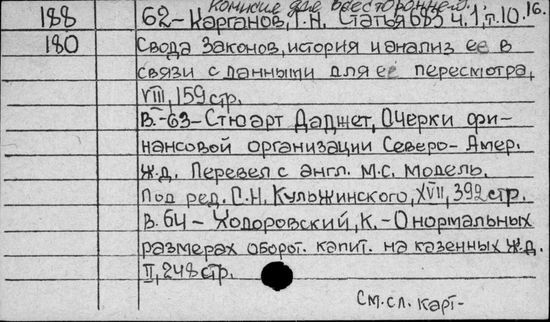 комисие для всестороннем.
188 62-Карганов, Г.Н. Статья 683 ч.1, т.10. 16.
180 Свода Законов, история и анализ ее в
связи с данными для ее пересмотра,
VIII, 159 стр.
В.-63-Стюарт Даджет, Очерки фи-
нансовой организации Северо-Амер.
ж.д. Перевел с англ. М.С. Модель.
Под ред. С.Н. Кульжинского, XVII, 392 стр.
В. 64 - Ходоровский, К.-О нормальных
размерах оборот. капит. на казенных ж.д.
II, 248 стр.
См. сл. карт-